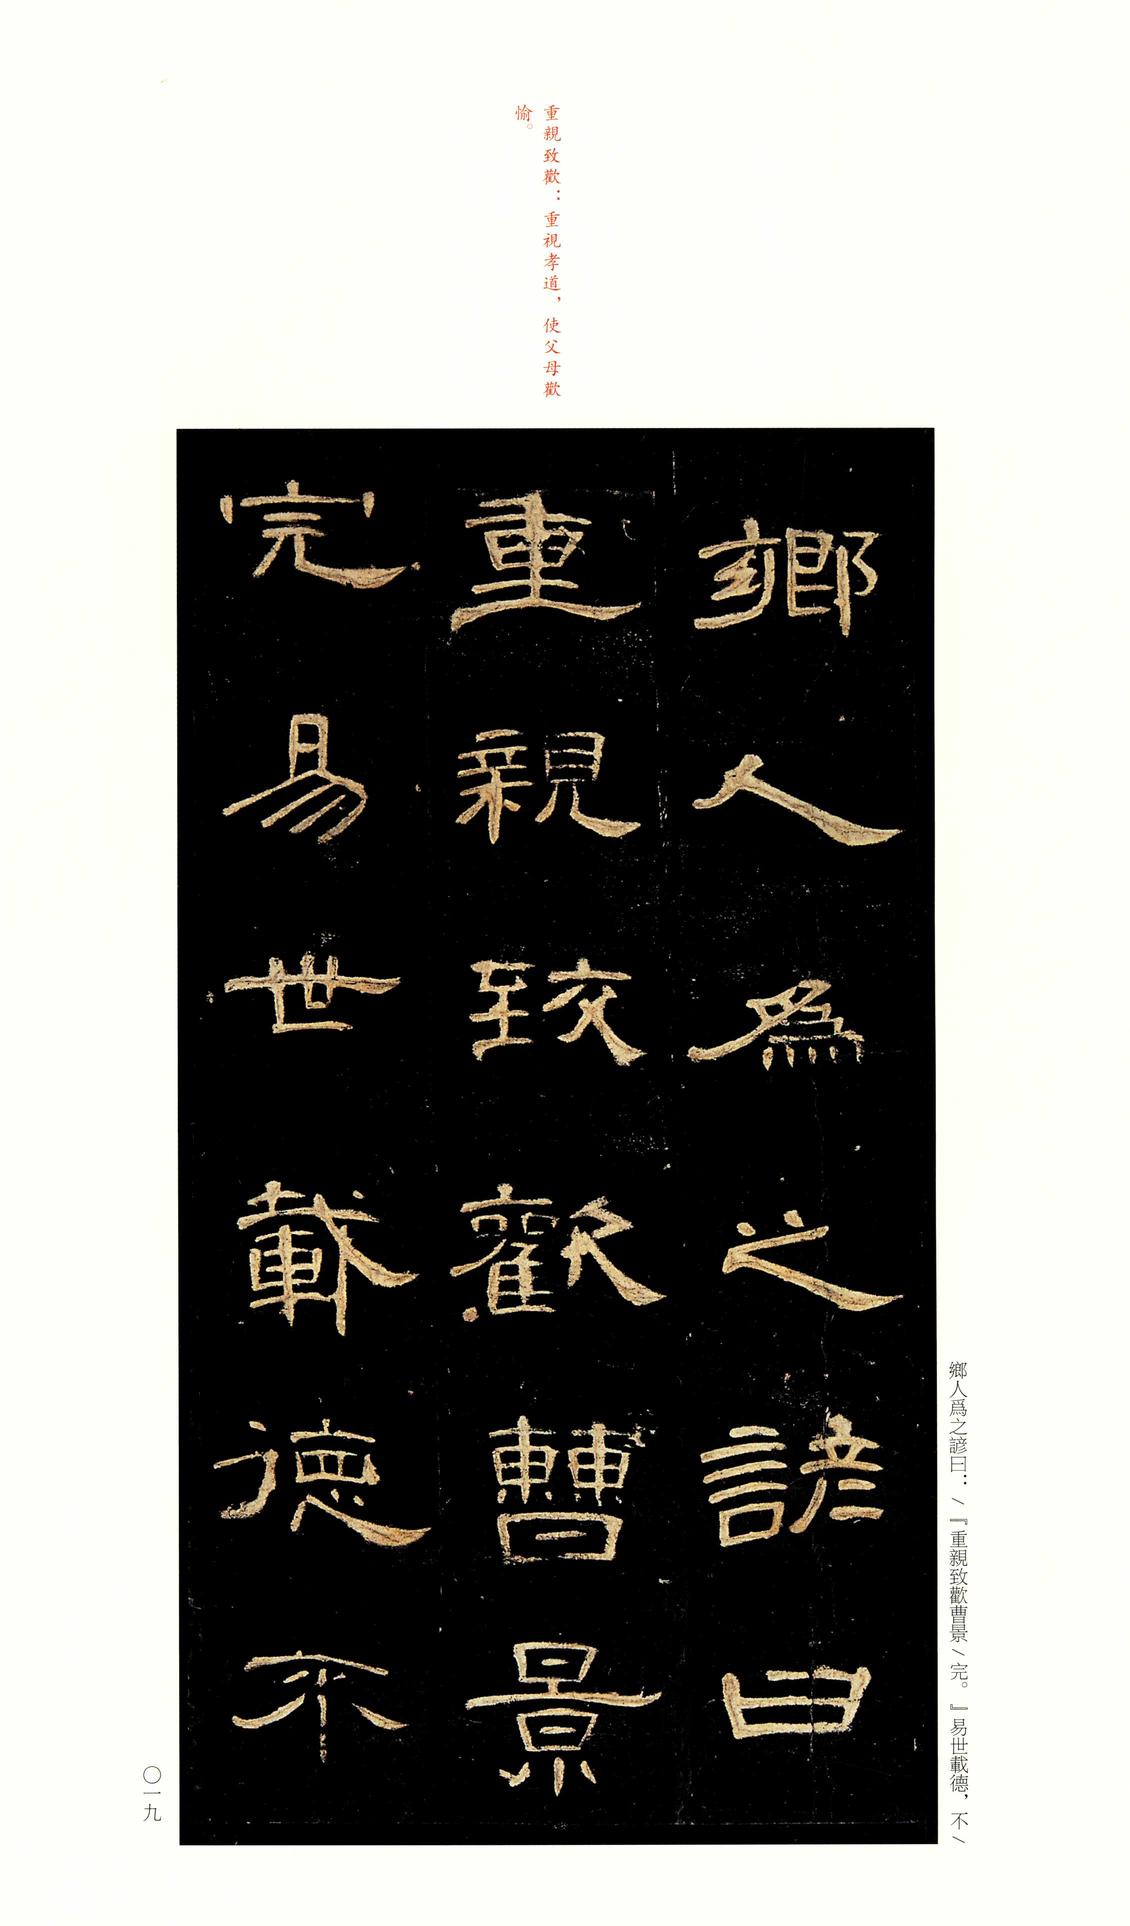 重親致歡：重視孝道，使父母歡
愉。
鄉人爲之諺曰
重親致歡曹景
完易世載德不
鄉人爲之諺曰：/『重親致歡曹景/完。』易世載德，不/
〇一九